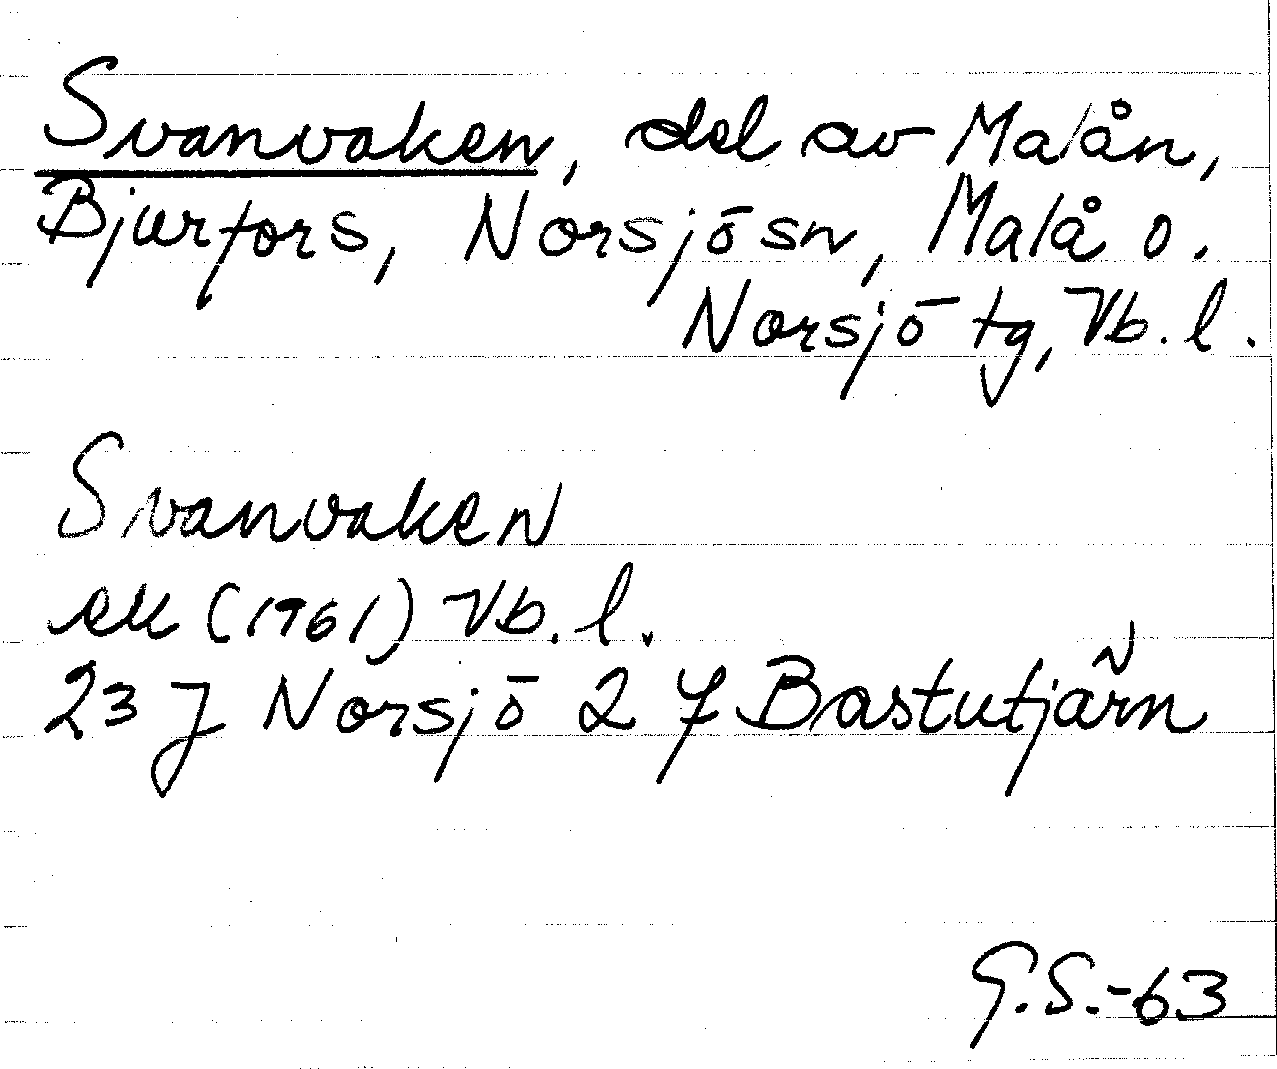 Svanvaken, del av Malån,
Bjurfors, Norsjö sn, Malå o.
Norsjö tg, Vb. l.
Svanvaken
ek (1961) Vb. l.
23 J Norsjö 2 f Bastutjärn
G.S.-63